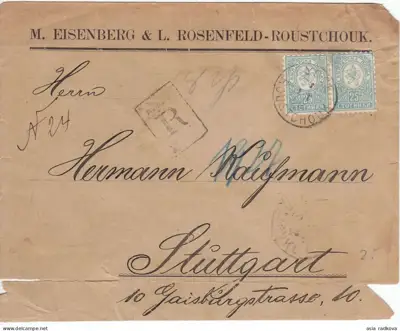 M. EISENBERG & L. ROSENFELD-ROUSTCHOUK.
Herrn
N 24
R
Hermann Kaufmann
Stuttgart
10 Gaisburgstrasse, 10.
25
asia radkova